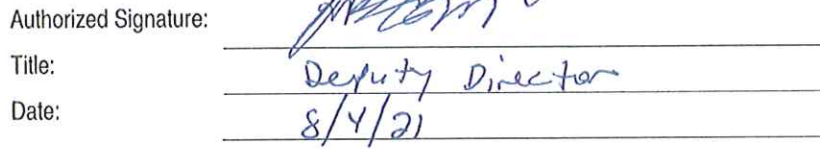 Authorized Signature:
Title: Deputy Director
Date: 8/4/21